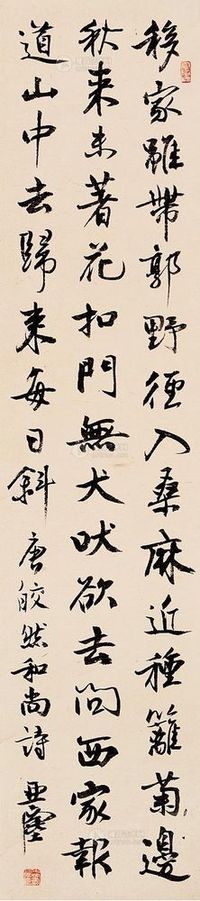 移家雖帶郭野徑入桑麻近種籬菊邊
秋來未著花扣門無犬吠欲去問西家報
道山中去歸來每日斜 唐皎然和尚詩 亞塵